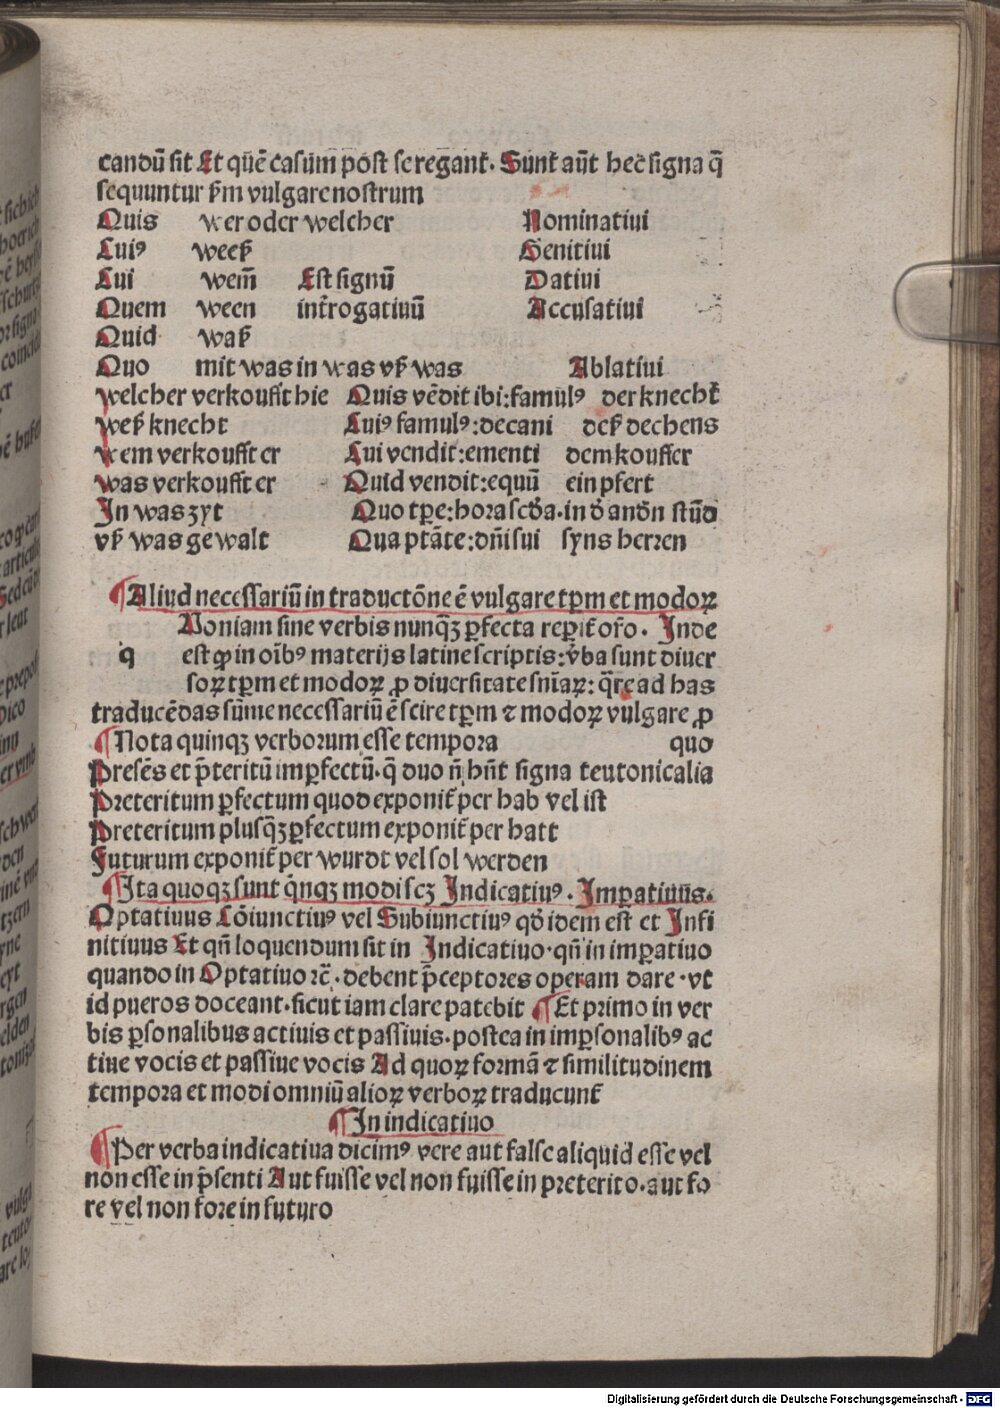 candū sit Et quē casum post se regant᷑. Sunt aūt hec signa q̄
sequuntur ẜm vulgare nostrum
Quis wer oder welcher Nominatiui
Cuiꝰ weeß Genitiui
Cui wem̄ Est signū Datiui
Quem ween int᷑rogatiuū Accusatiui
Quid waß
Quo mit was in was vß was Ablatiui
welcher verkoufft hie Quis vēdit ibi: famulꝰ der knecht
weß knecht Cuiꝰ famulꝰ: decani deß dechens
wem verkoufft er Cui vendit: ementi dem kouffer
was verkoufft er Quid vendit: equū ein pfert
In was zyt Quo tꝑe: hora scd᷑a. in d᷑ andn̄ stūd
vß was gewalt Qua ptāte: dn̄i sui syns herren
¶ Aliud necessariū in traductōne ē vulgare tꝑm et modoꝝ
Uoniam sine verbis nunqꝫ ꝑfecta reꝑit᷑ or̄o. Inde
q est ꝙ in oībꝰ materijs latine scriptis: v᷑ba sunt diuer
soꝝ tꝑm et modoꝝ ꝓ diuersitate sn̄iaꝝ: q̄re ad has
traducēdas sūme necessariū ē scire tꝑm ⁊ modoꝝ vulgare ꝓ
¶ Nota quinqꝫ verborum esse tempora quo
Presēs et p̄teritū imꝑfectū. q̄ duo n̄ hn̄t signa teutonicalia
Preteritum ꝑfectum quod exponit᷑ per hab vel ist
Preteritum plusqꝫꝑfectum exponit᷑ per hatt
Futurum exponit᷑ per wurdt vel sol werden
¶ Ita quoqꝫ sunt q̄nqꝫ modi scꝫ Indicatiuꝰ. Imꝑatiuus.
Optatiuus Cōiunctiuꝰ vel Subiunctiuꝰ qd᷑ idem est et Infi
nitiuus Et qn̄ loquendum sit in Indicatiuo. qn̄ in imꝑatiuo
quando in Optatiuo ⁊c̄. debent p̄ceptores operam dare. vt
id pueros doceant. sicut iam clare patebit ¶ Et primo in ver
bis ꝑsonalibus actiuis et passiuis. postea in imꝑsonalibꝰ ac
tiue vocis et passiue vocis Ad quoꝝ formā ⁊ similitudinem
tempora et modi omniū alioꝝ verboꝝ traducunt᷑
¶ In indicatiuo
¶ Per verba indicatiua dicimꝰ vere aut false aliquid esse vel
non esse in p̄senti Aut fuisse vel non fuisse in preterito. aut fo
re vel non fore in futuro
Digitalisierung gefördert durch die Deutsche Forschungsgemeinschaft - DFG